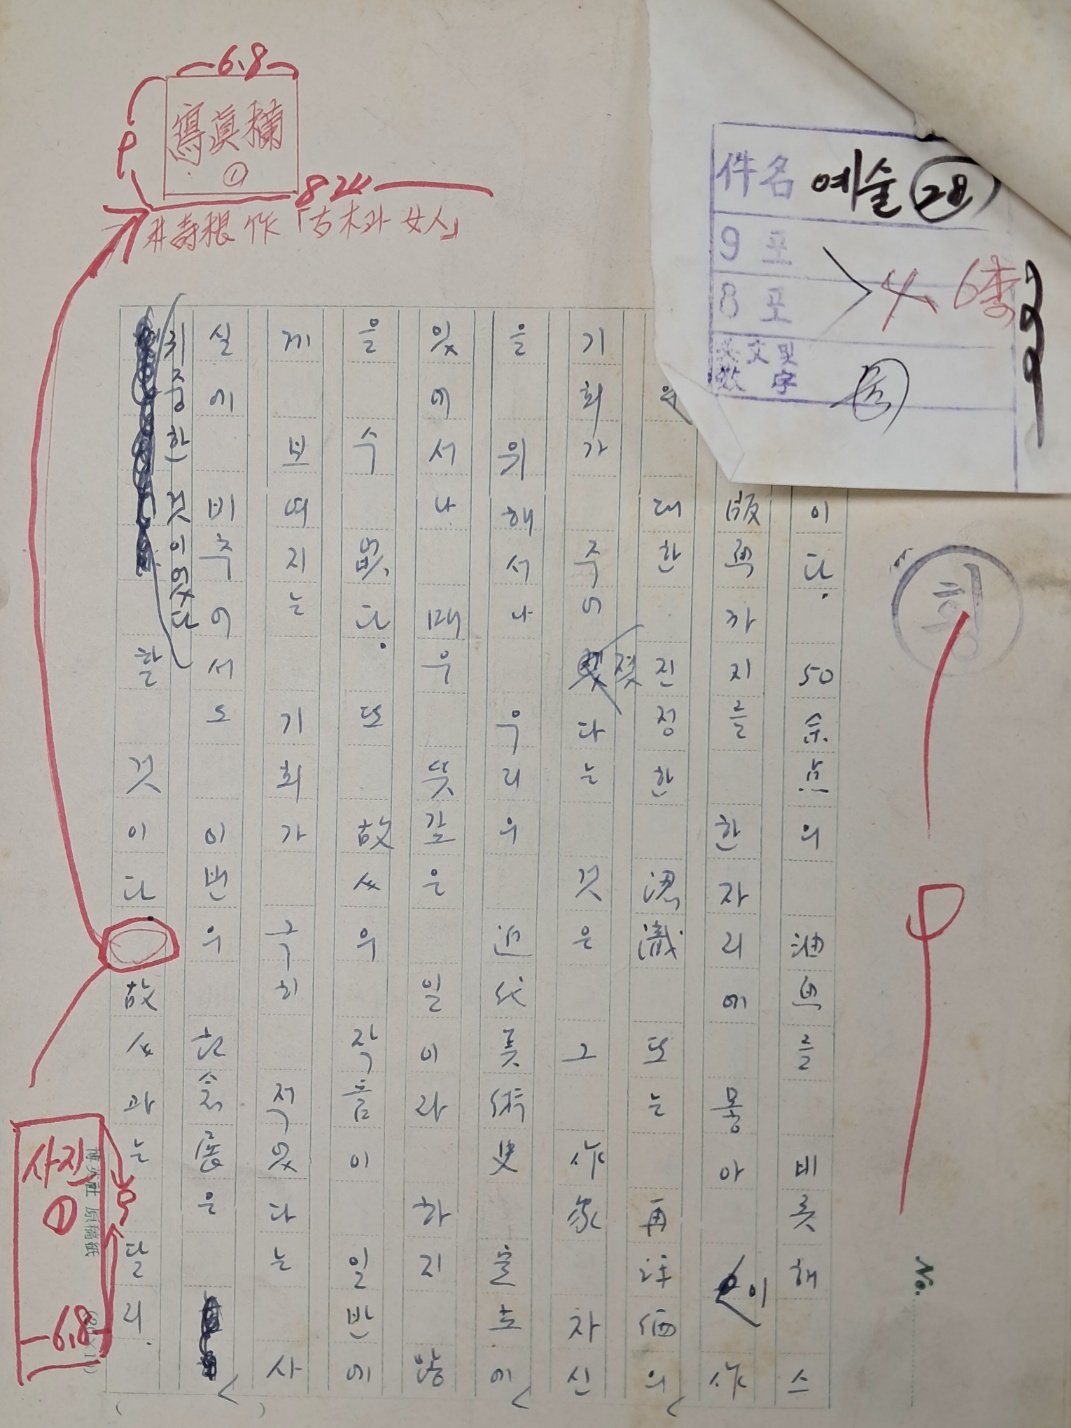 6.8
寫眞欄
①
朴壽根 作「古木과 女人」
件名 예술 28
9 포
8 포
英文 및
数字
이다. 50余点의 油画를 비롯해 스
版画까지를 한자리에 뫃아 이 作
대한 진정한 認識 또는 再評価의
기회가 주어졌다는 것은 그 作家 자신
을 위해서나 우리의 近代美術史 定立에
있어서나 매우 뜻깊은 일이라 하지 않
을 수 없다. 또 故人의 작품이 일반에
게 보여지는 기회가 극히 적었다는 사
실에 비추어서도 이번의 記念展은
귀중한 것이었다
할 것이다. 故人과는 달리
사진
①
6.8
No.